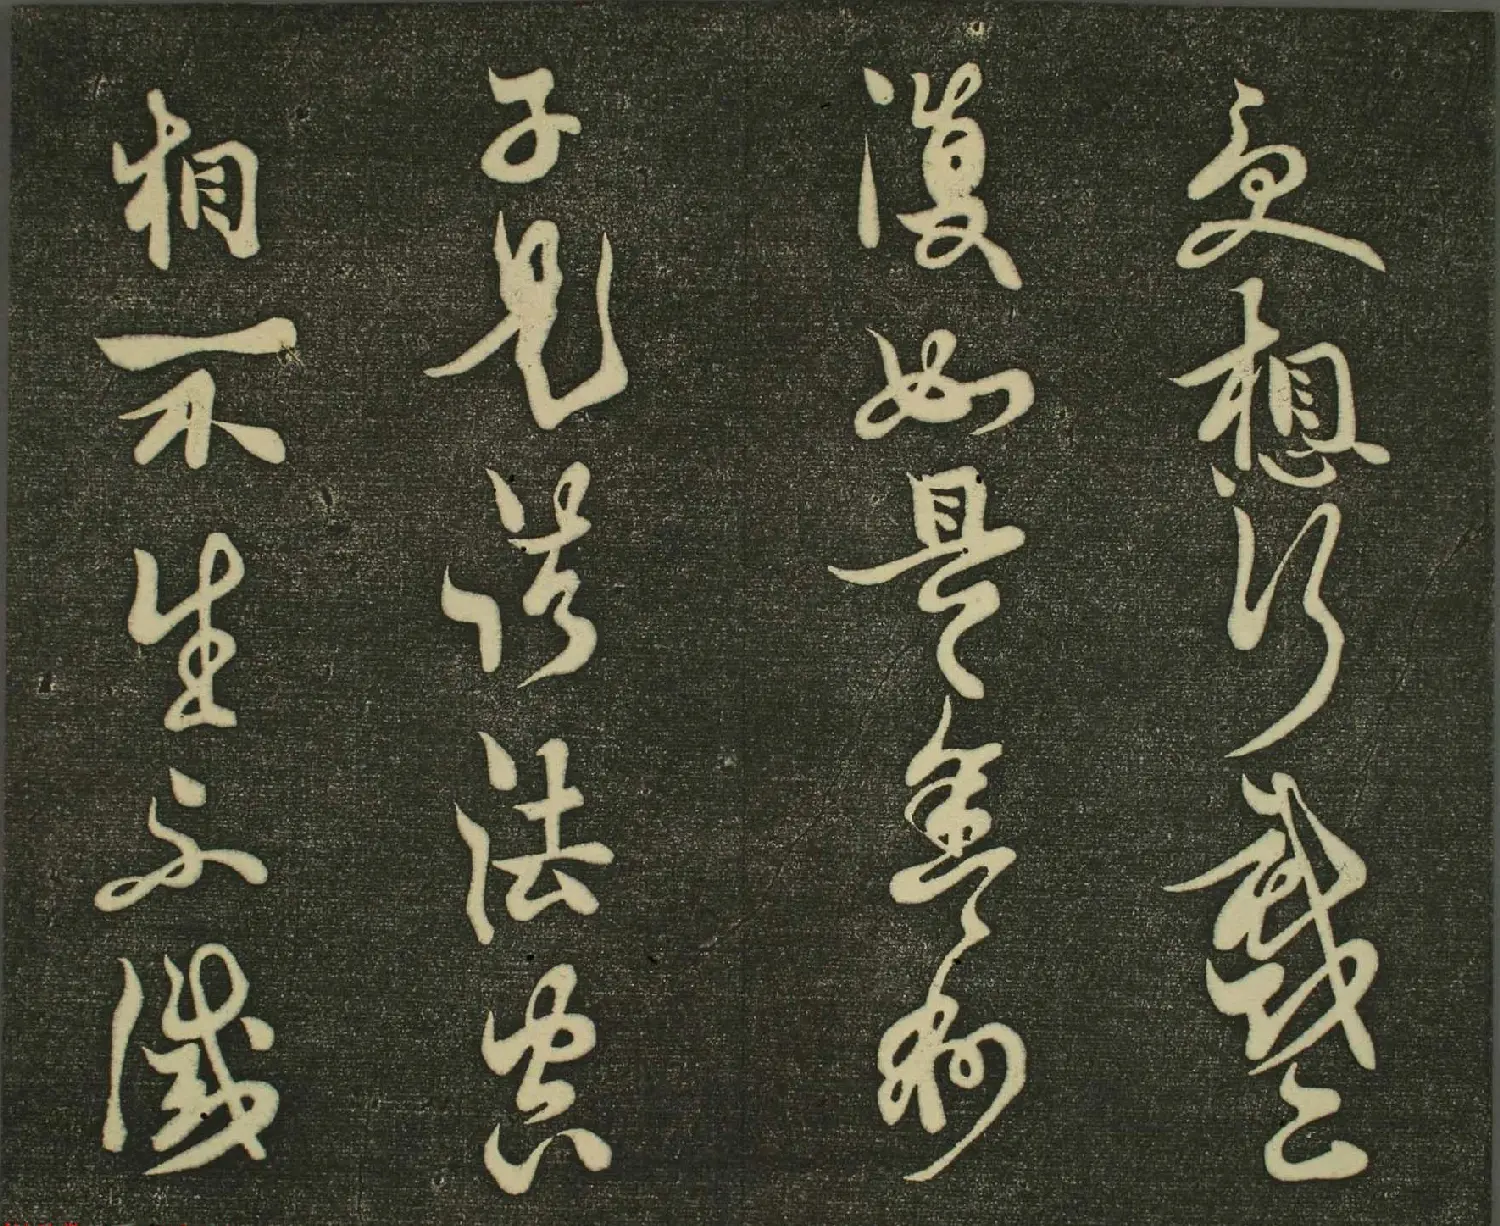 受想行識亦
復如是舍利
子是諸法空
相不生不滅